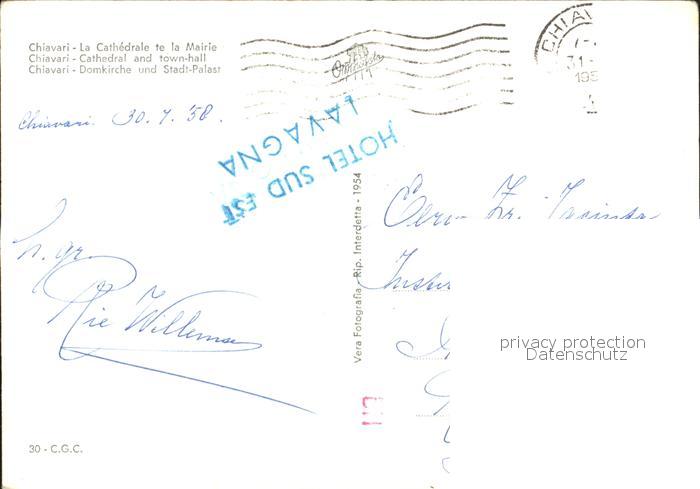 Chiavari - La Cathédrale te la Mairie
Chiavari - Cathedral and town-hall
Chiavari - Domkirche und Stadt-Palast
CHIAV
31-
195
Chiavari. 30.7.'58.
HOTEL SUD EST
LAVAGNA
h. gr.
Rie Willemse
Vera Fotografia - Rip. Interdetta - 1954
Eerw. Zr. Jacinta
privacy protection
Datenschutz
30 - C.G.C.